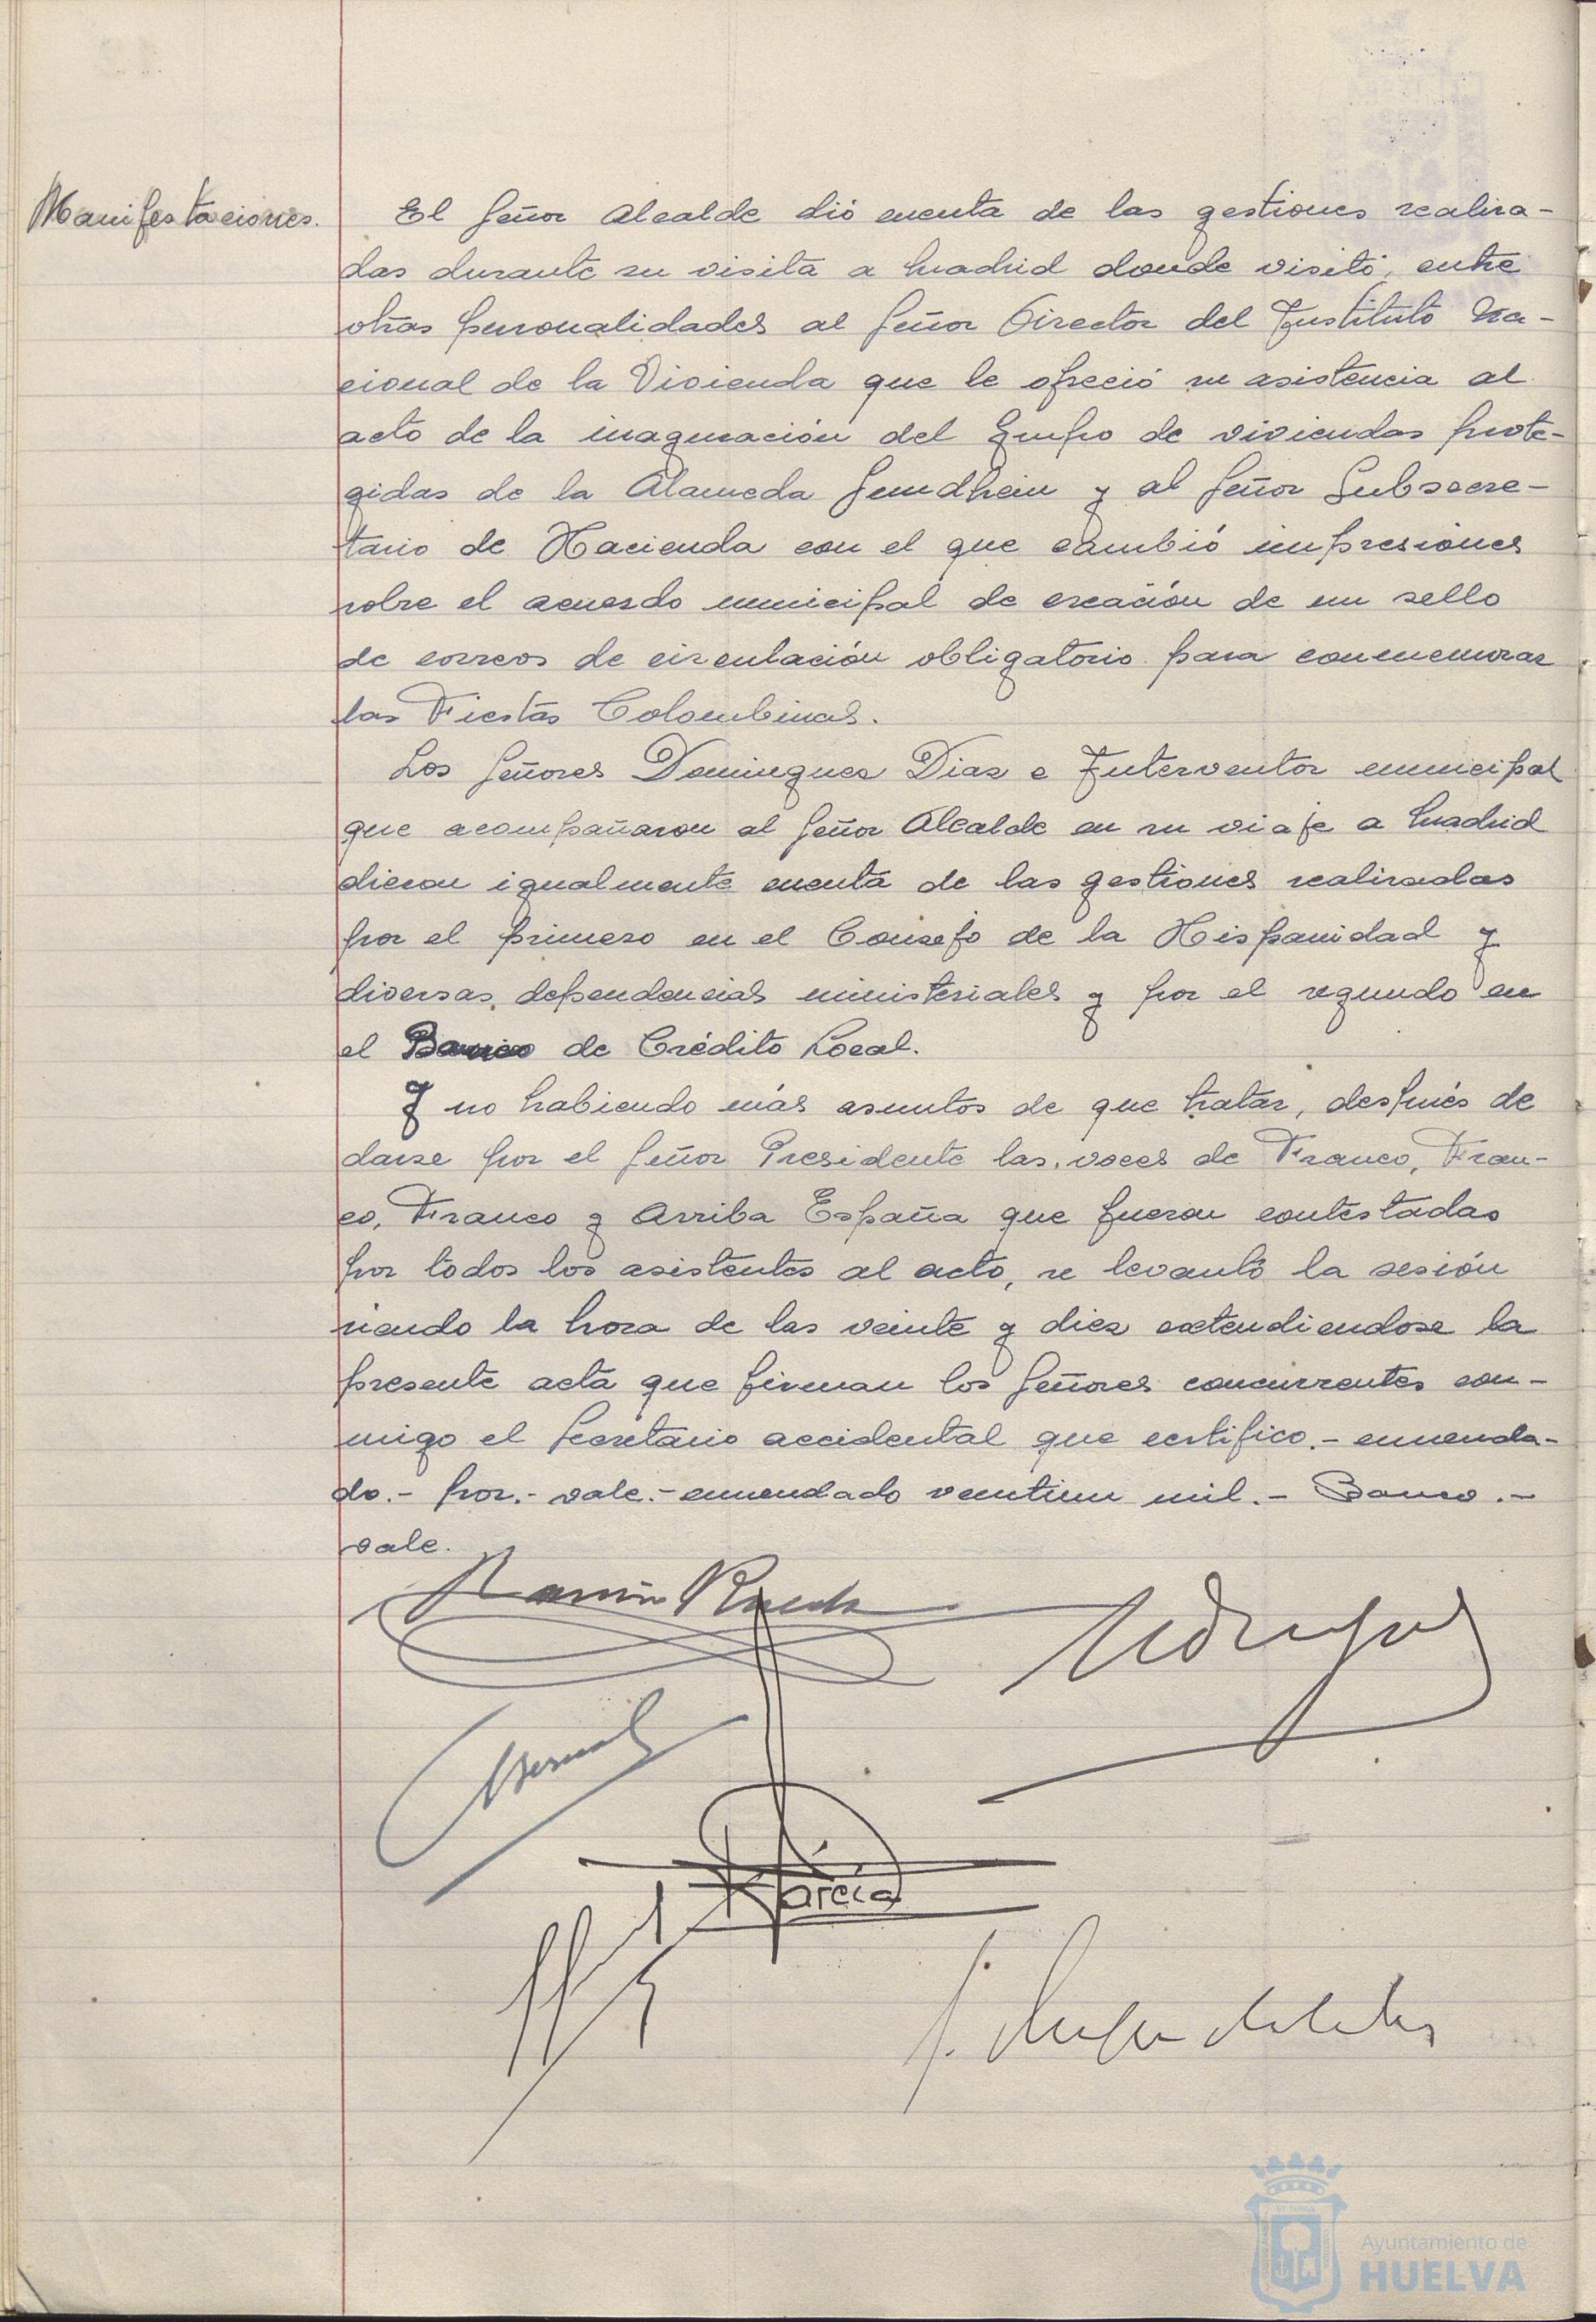 Manifestaciones.
El Señor Alcalde dió cuenta de las gestiones realiza-
das durante su visita a Madrid donde visitó, entre
otras personalidades al Señor Director del Instituto Na-
cional de la Vivienda que le ofreció su asistencia al
acto de la inaguración del Grupo de viviendas prote-
gidas de la Alameda Sundhein y al Señor Subsecre-
tario de Hacienda con el que cambió impresiones
sobre el acuerdo municipal de creación de un sello
de correos de circulación obligatorio para conmemorar
las Fiestas Colombinas.
Los Señores Dominguez Diaz e Interventor municipal
que acompañaron al Señor Alcalde en su viaje a Madrid
dieron igualmente cuenta de las gestiones realizadas
por el primero en el Consejo de la Hispanidad y
diversas dependencias ministeriales y por el segundo en
el Banco de Crédito Local.
Y no habiendo más asuntos de que tratar, después de
darse por el Señor Presidente las voces de Franco, Fran-
co, Franco y Arriba España que fueron contestadas
por todos los asistentes al acto, se levantó la sesión
siendo la hora de las veinte y diez extendiendose la
presente acta que firman los Señores concurrentes con-
migo el Secretario accidental que certifico.- enmenda-
do.- por.- vale.- enmendado ventiun mil.- Banco.-
vale.
Ramón Rueda
Bernal
García
Ayuntamiento de
HUELVA